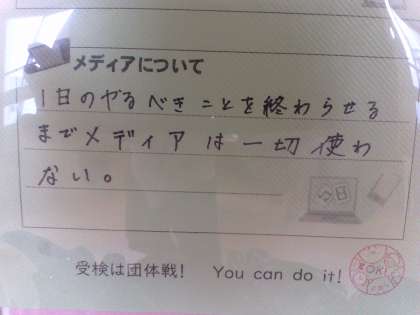 メディアについて
1日のやるべきことを終わらせる
までメディアは一切使わ
ない。
受検は団体戦! You can do it!
OK!